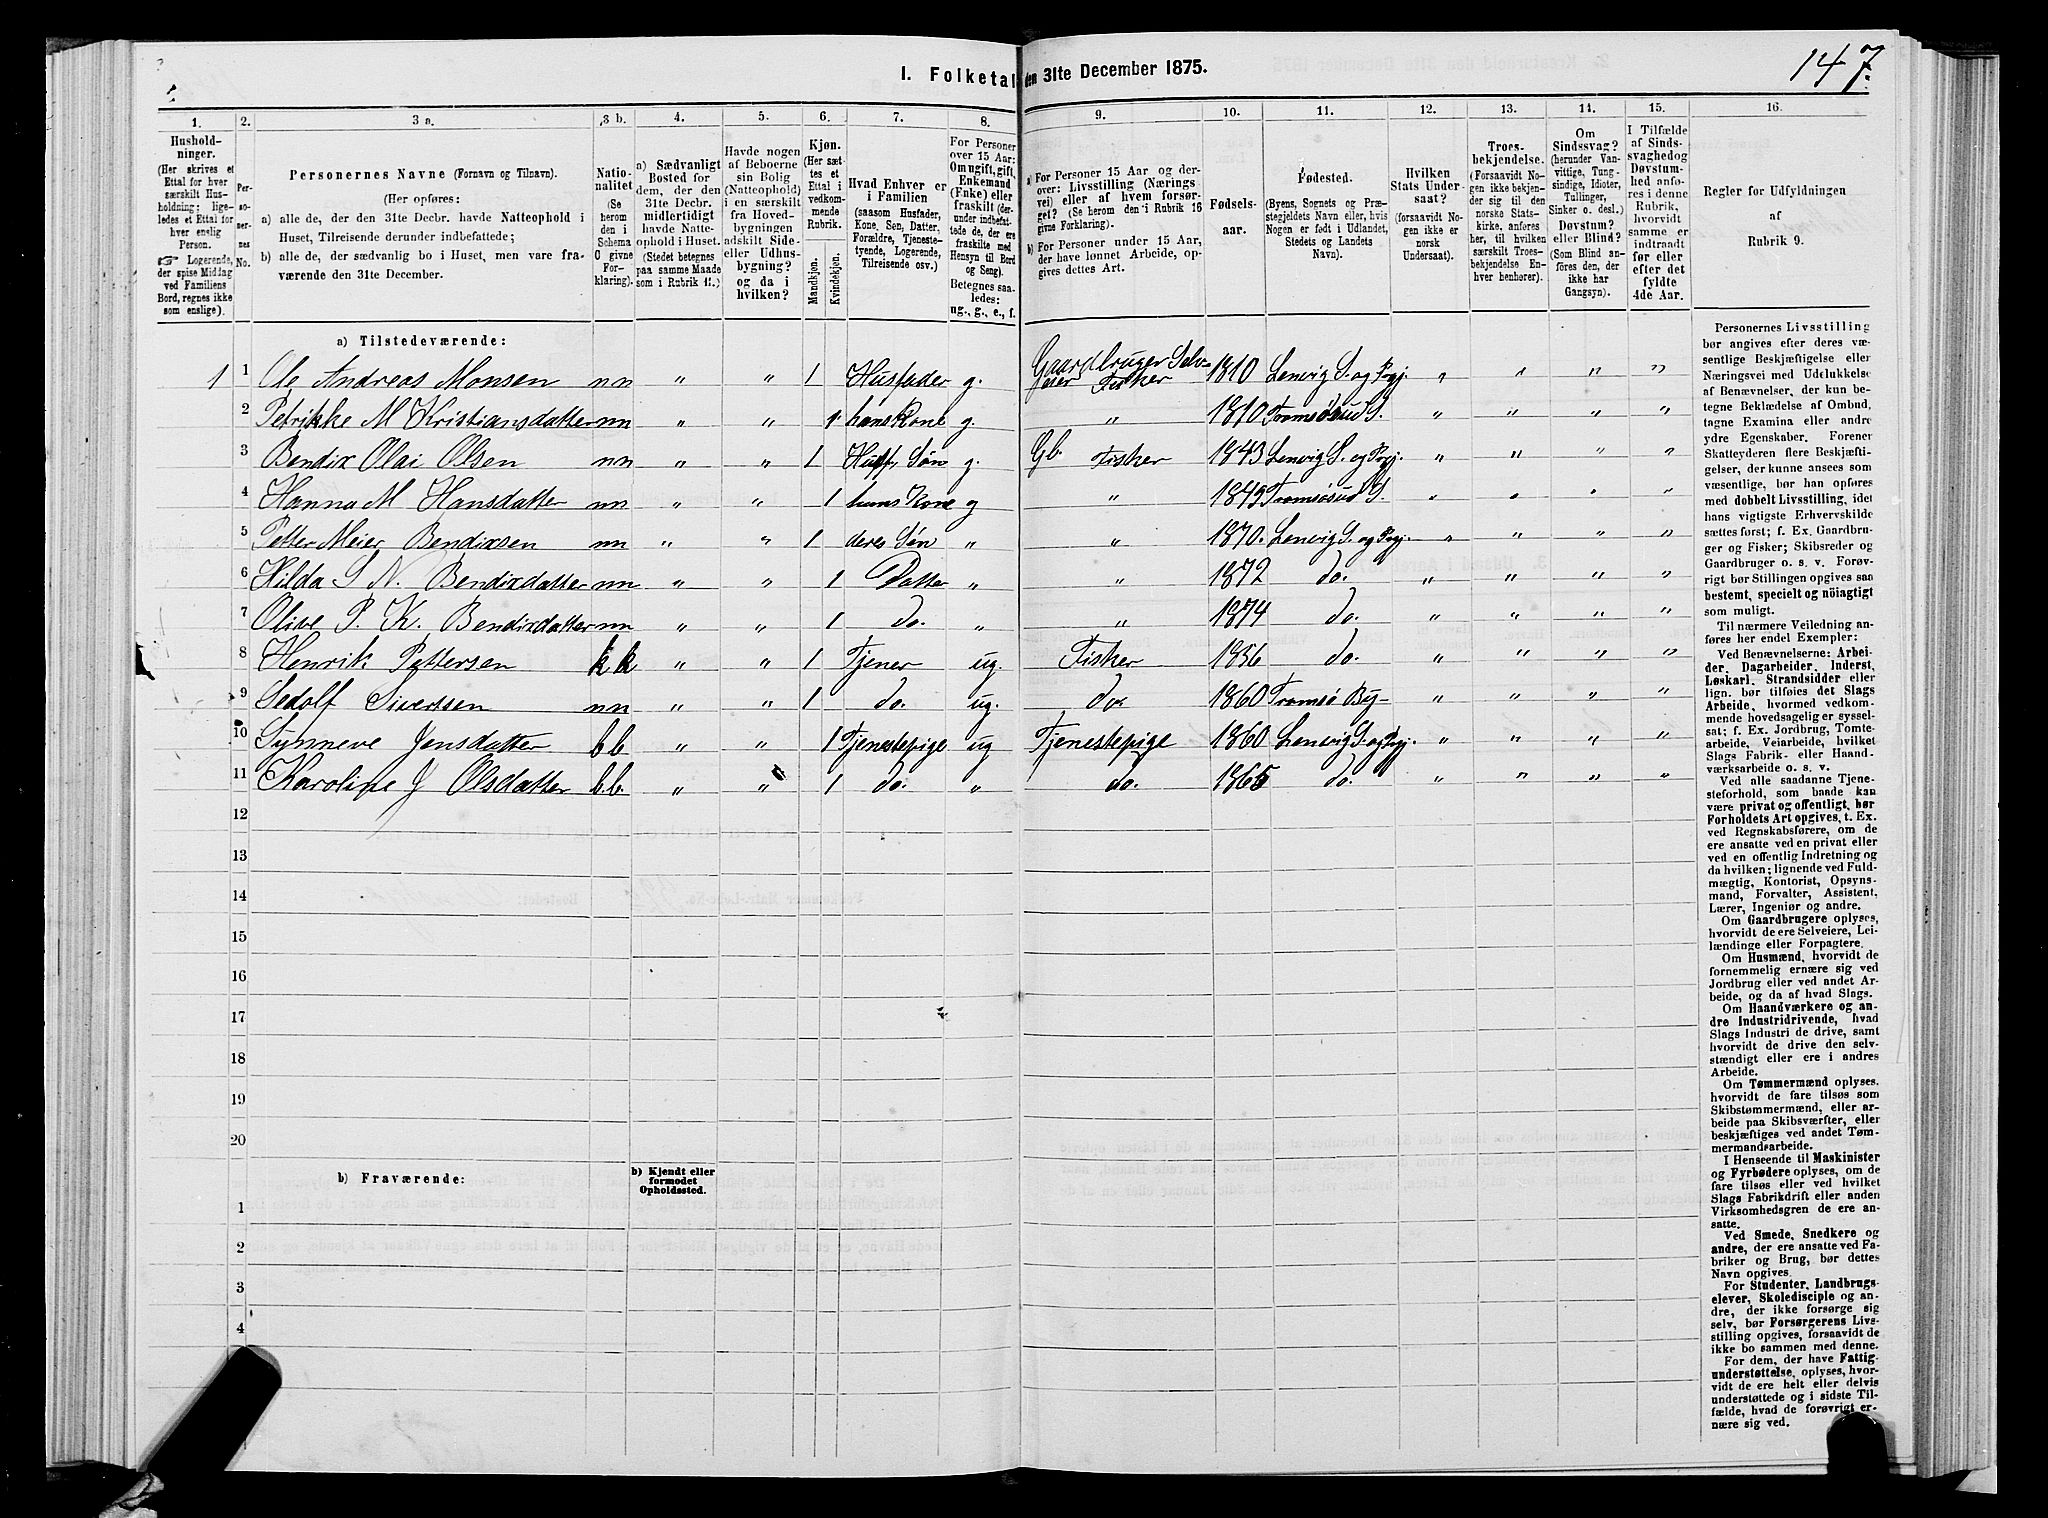 147.
I. Folketal den 31te December 1875.
1. 2. 3 a. 3 b. 4. 5. 6. 7. 8. 9. 10. 11. 12. 13. 14. 15. 16.
Hushold-
ninger.
(Her skrives et
Ettal for hver
særskilt Hus-
holdning; lige-
ledes et Ettal for
hver enslig
Person.
☞ Logerende,
der spise Middag
ved Familiens
Bord, regnes ikke
som enslige).
Per-
so-
ner-
nes
No.
Personernes Navne (Fornavn og Tilnavn).
(Her opføres:
a) alle de, der den 31te Decbr. havde Natteophold i
Huset, Tilreisende derunder indbefattede;
b) alle de, der sædvanlig bo i Huset, men vare fra-
værende den 31te December.
Natio-
nalitet
(Se
herom
den i
Schema
O givne
For-
klaring).
a) Sædvanligt
Bosted for
dem, der den
31te Decbr.
midlertidigt
havde Natte-
ophold i Huset.
(Stedet betegnes
paa samme Maade
som i Rubrik 11.)
Havde nogen
af Beboerne
sin Bolig
(Natteophold)
i en særskilt
fra Hoved-
bygningen
adskilt Side-
eller Udhus-
bygning?
og da i
hvilken?
Kjøn.
(Her sæt-
tes et
Ettal i
vedkom-
mende
Rubrik.
Mandkjøn.
Kvindekjøn.
Hvad Enhver er
i Familien
(saasom Husfader,
Kone, Søn, Datter,
Forældre, Tjeneste-
tyende, Logerende,
Tilreisende osv.)
For Personer
over 15 Aar:
Om ugift, gift,
Enkemand
(Enke) eller
fraskilt (der-
under indbefat-
tede de, der ere
fraskilte med
Hensyn til Bord
og Seng).
Betegnes saa-
ledes:
ug., g., e., f.
a) For Personer 15 Aar og der-
over: Livsstilling (Nærings-
vei) eller af hvem forsør-
get? (Se herom den i Rubrik 16
givne Forklaring).
b) For Personer under 15 Aar,
der have lønnet Arbeide, op-
gives dettes Art.
Fødsels-
aar.
Fødested.
(Byens, Sognets og Præ-
stegjeldets Navn eller, hvis
Nogen er født i Udlandet,
Stedets og Landets
Navn).
Hvilken
Stats Under-
saat?
(forsaavidt No-
gen ikke er
norsk
Undersaat).
Troes-
bekjendelse.
(Forsaavidt No-
gen ikke bekjen-
der sig til den
norske Stats-
kirke, anføres
her, til hvilken
særskilt Troes-
bekjendelse En-
hver henhører).
Om
Sindssvag?
(herunder Van-
vittige, Tung-
sindige, Idioter,
Tullinger,
Sinker o. desl.)
Døvstum?
eller Blind?
(Som Blind an-
føres den, der
ikke har
Gangsyn).
I Tilfælde
af Sinds-
svaghed og
Døvstum-
hed anfø-
res i denne
Rubrik,
hvorvidt
samme er
indtraadt
før eller
efter det
fyldte
4de Aar.
Regler for Udfyldningen
af
Rubrik 9.
a) Tilstedeværende:
1 1 Ole Andreas Monsen nn „ „ 1 Husfader g. Gaardbruger Selv-
eier Fisker 1810 Lenvig S. og Prgj. „ „ „ „
2 Petrikke M Kristiansdatter nn „ „ 1 hans Kone g. „ 1810 Tromsøsud S. „ „ „ „
3 Bendix Olai Olsen nn „ „ 1 Husf. Søn g. Gb. Fisker 1843 Lenvig S. og Prgj. „ „ „ „
4 Hanna M Hansdatter nn „ „ 1 hans Kone g „ 1845 Tromsøsud S. „ „ „ „
5 Petter Meier Bendixsen nn „ „ 1 deres Søn „ „ 1870. Lenvig S. og Prgj. „ „ „ „
6 Hilda S N. Bendixdatter nn „ „ 1 Datter „ „ 1872 do. „ „ „ „
7 Olive P. K. Bendixdatter nn „ „ 1 do. „ „ 1874 do. „ „ „ „
8 Henrik Pettersen k.k „ „ 1 Tjener ug. Fisker 1856 do. „ „ „ „
9 Sedolf Sivertsen nn „ „ 1 do. ug. do 1860 Tromsø By „ „ „ „
10 Synneve Jensdatter b.b. „ „ 1 Tjenestepige ug Tjenestepige 1860 Lenvig S. og Prgj. „ „ „ „
11 Karoline J Olsdatter b.b. „ „ 1 do. „ do. 1865 do. „ „ „ „
12
13
14
15
16
17
18
19
20
b) Fraværende:
b) Kjendt eller
formodet
Opholdssted.
1
2
3
4
Personernes Livsstilling
bør angives efter deres væ-
sentlige Beskjæftigelse eller
Næringsvei med Udelukkelse
af Benævnelser, der kun be-
tegne Beklædelse af Ombud,
tagne Examina eller andre
ydre Egenskaber. Forener
Skatteyderen flere Beskjæfti-
gelser, der kunne ansees som
væsentlige, bør han opføres
med dobbelt Livsstilling, idet
hans vigtigste Erhvervskilde
sættes først; f. Ex. Gaardbru-
ger og Fisker; Skibsreder og
Gaardbruger o. s. v. Forøv-
rigt bør Stillingen opgives saa
bestemt, specielt og nöiagtigt
som muligt.
Til nærmere Veiledning an-
føres her endel Exempler:
Ved Benævnelserne: Arbei-
der, Dagarbeider, Inderst,
Løskarl, Strandsidder eller
lign. bør tilføies det Slags
Arbeide, hvormed vedkom-
mende hovedsagelig er syssel-
sat; f. Ex. Jordbrug, Tomte-
arbeide, Veiarbeide, hvilket
Slags Fabrik- eller Haand-
værksarbeide o. s. v.
Ved alle saadanne Tjene-
steforhold, som baade kan
være privat og offentligt, bør
Forholdets Art opgives, t. Ex.
ved Regnskabsførere, om de
ere ansatte ved en privat eller
ved en offentlig Indretning og
da hvilken; lignende ved Fuld-
mægtig, Kontorist, Opsyns-
mand, Forvalter, Assistent,
Lærer, Ingeniør og andre.
Om Gaardbrugere oplyses,
hvorvidt de ere Selveiere, Lei-
lændinge eller Forpagtere.
Om Husmænd, hvorvidt de
fornemmelig ernære sig ved
Jordbrug eller ved andet Ar-
beide, og da af hvad Slags.
Om Haandværkere og an-
dre Industridrivende, hvad
Slags Industri de drive, samt
hvorvidt de drive den selv-
stændigt eller ere i andres
Arbeide.
Om Tømmermænd oplyses,
hvorvidt de fare tilsøs som
Skibstømmermænd, eller ar-
beide paa Skibsværfter, eller
beskjæftiges ved andet Tøm-
mermandsarbeide.
I Henseende til Maskinister
og Fyrbødere oplyses, om de
fare tilsøs eller ved hvilket
Slags Fabrikdrift eller anden
Virksomhedsgren de ere an-
satte.
Ved Smede, Snedkere og
andre, der ere ansatte ved Fa-
briker og Brug, bør dettes
Navn opgives.
For Studenter, Landbrugs-
elever, Skoledisciple og an-
dre, der ikke forsørge sig
selv, bør Forsørgerens Livs-
stilling opgives, forsaavidt de
ikke bo sammen med denne.
For dem, der have Fattig-
understøttelse, oplyses, hvor-
vidt de ere helt eller delvis
understøttede og i sidste Til-
fælde, hvad de forøvrigt er-
nære sig ved.